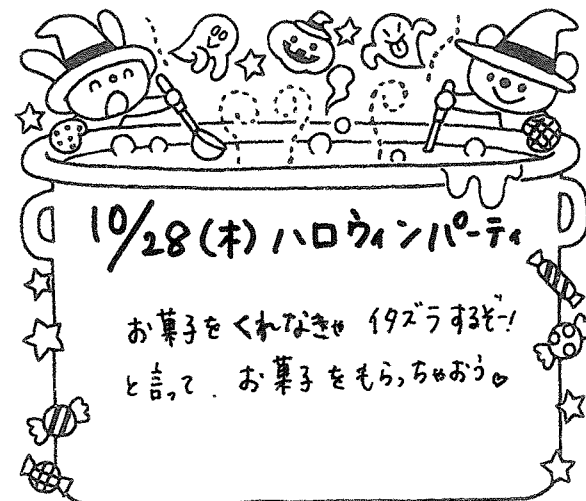 10/28(木)ハロウィンパーティ
お菓子をくれなきゃ イタズラするぞー!
と言って、お菓子をもらっちゃおう♡